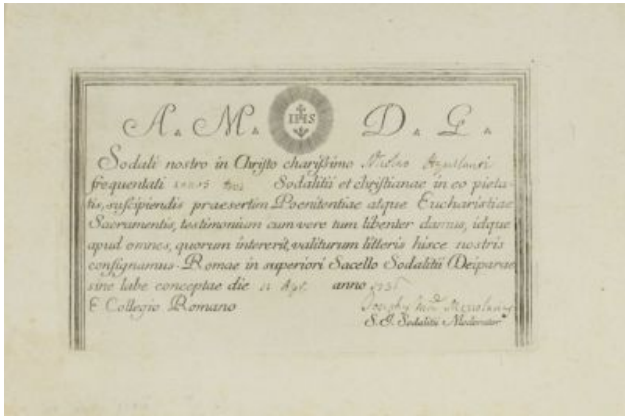 A. M. IHS D. G.
Sodali nostro in Christo charißimo Nicolao
frequentati annos duos Sodalitii et christianae in eo pieta-
tis, suscipiendis praesertim Poenitentiae atque Eucharistiae
Sacramentis, testimonium cum vere tum libenter damus, idque
apud omnes, quorum intererit, valiturum litteris hisce nostris
consignamus. Romae in superiori Sacello Sodalitii Deiparae
sine labe conceptae die anno
E Collegio Romano
S. J. Sodalitii Moderator